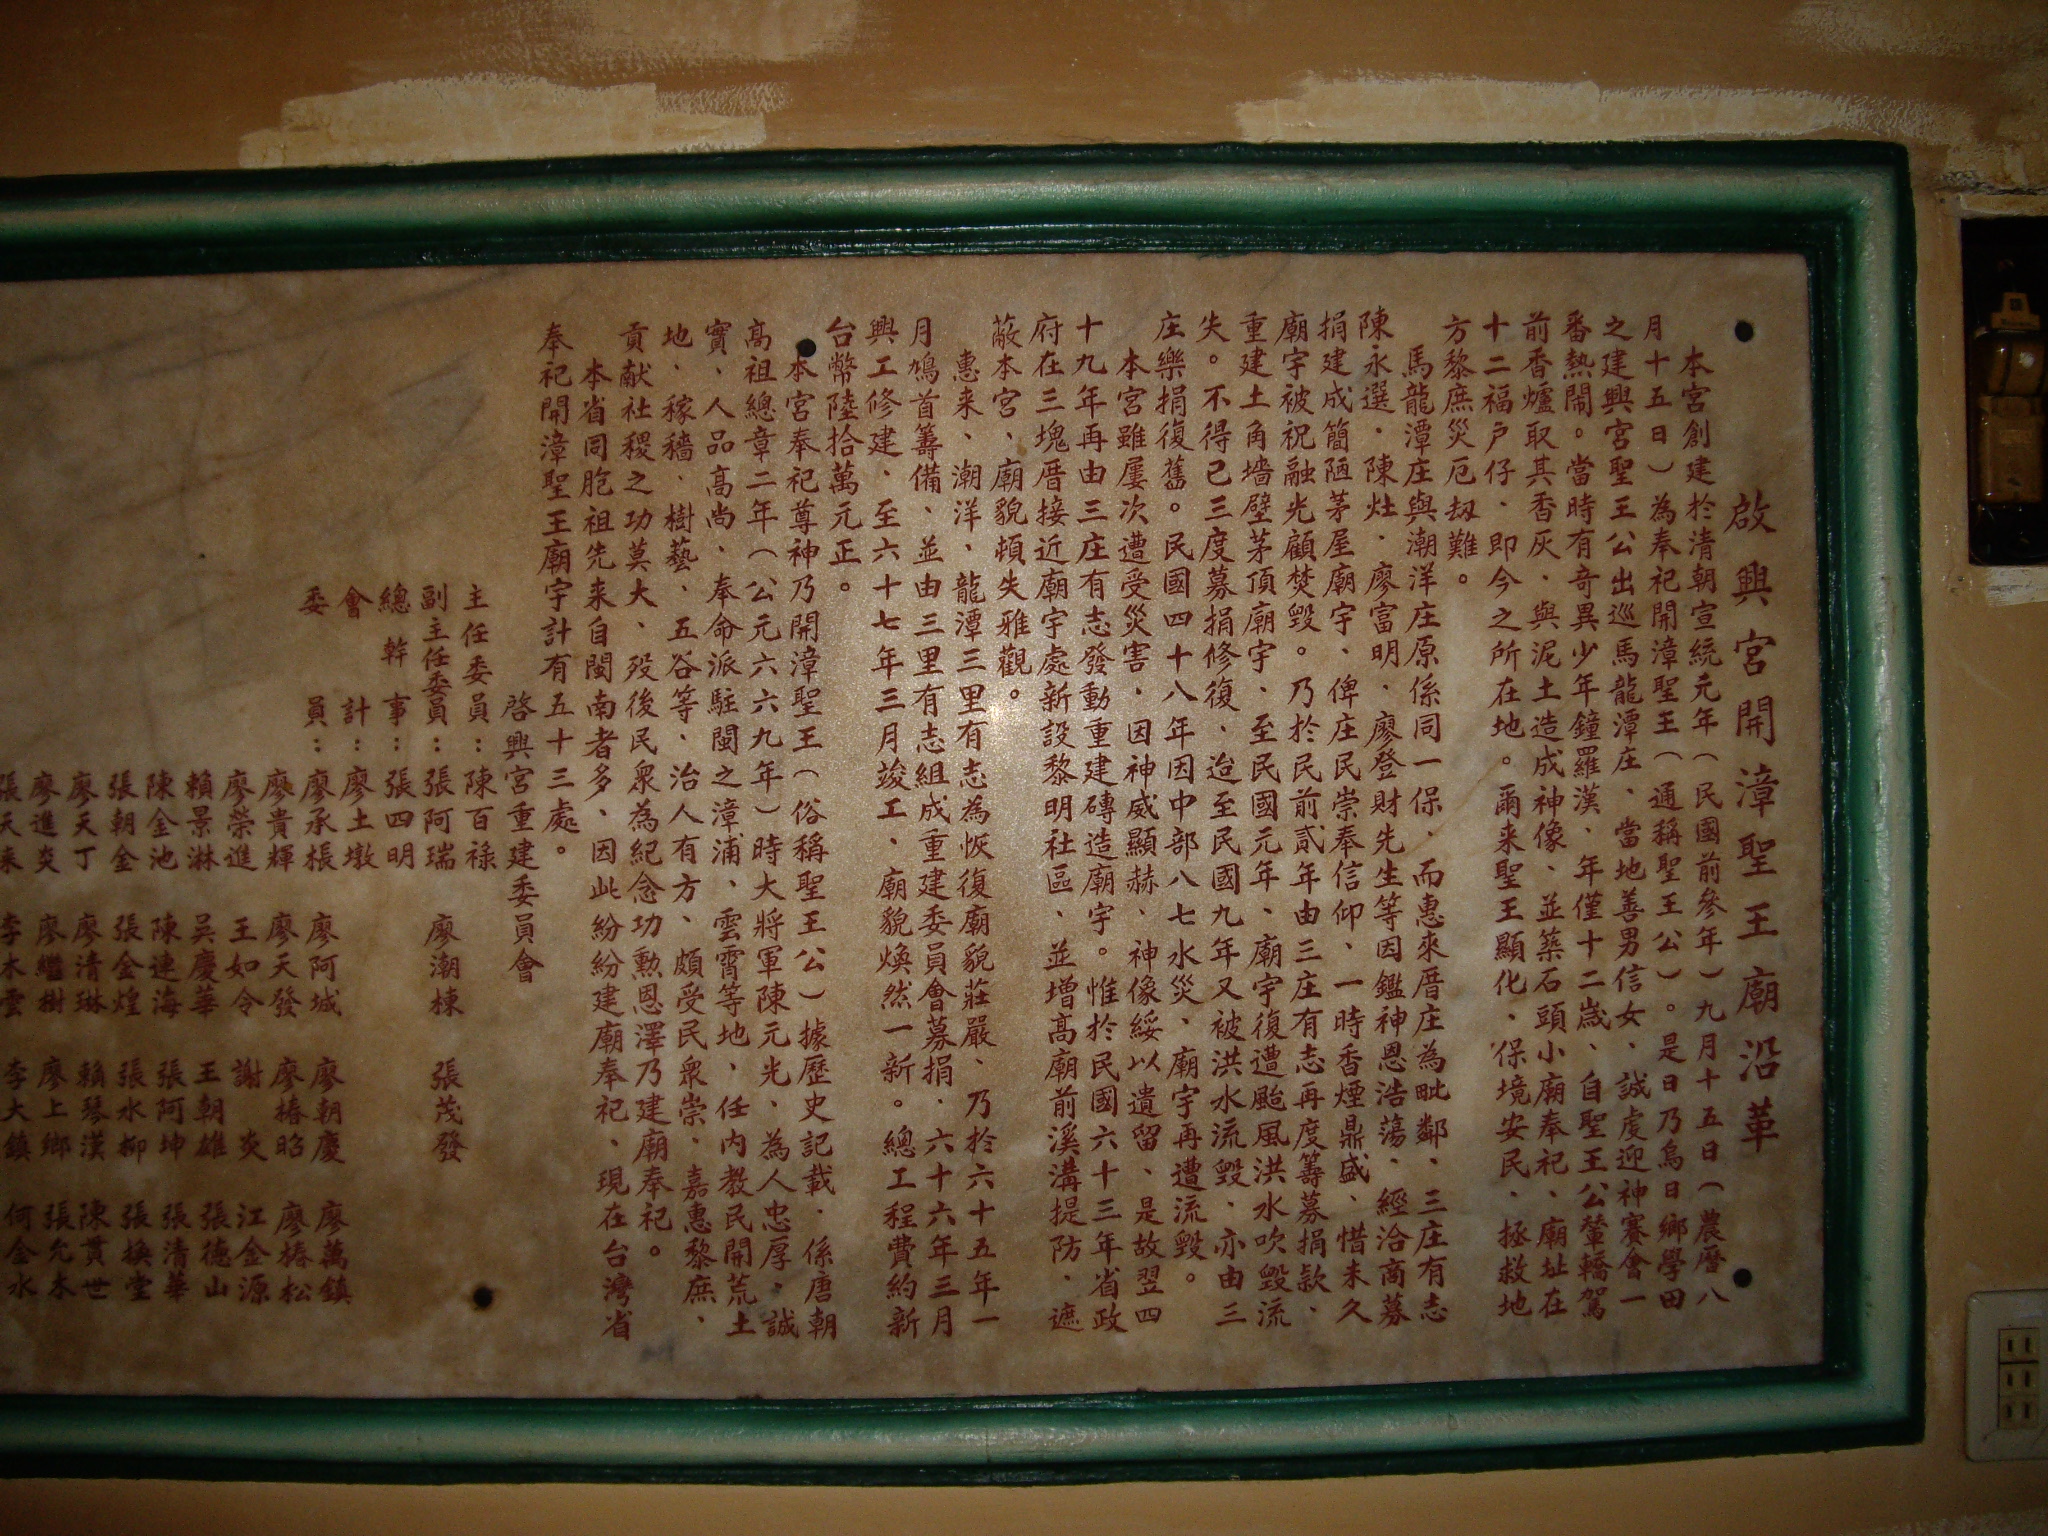 啟興宮開漳聖王廟沿革
本宮創建於清朝宣統元年(民國前參年)九月十五日(農曆八
月十五日)為奉祀開漳聖王(通稱聖王公)。是日乃烏日鄉學田
之建興宮聖王公出巡馬龍潭庄、當地善男信女、誠虔迎神賽會一
番熱鬧。當時有奇異少年鐘羅漢、年僅十二歲、自聖王公輦轎駕
前香爐取其香灰、與泥土造成神像、並築石頭小廟奉祀、廟址在
十二福户仔、即今之所在地。爾来聖王顯化、保境安民、拯救地
方黎庶災厄刼難。
馬龍潭庄與潮洋庄原係同一保、而惠來厝庄為毗鄰、三庄有志
陳永選、陳灶、廖富明、廖登財先生等因鑑神恩浩蕩、經洽商募
捐建成簡陋茅屋廟宇、俾庄民崇奉信仰、一時香煙鼎盛、惜未久
廟宇被祝融光顧焚毀。乃於民前貳年由三庄有志再度籌募捐款、
重建土角墻壁茅頂廟宇、至民國元年、廟宇復遭颱風洪水吹毀流
失。不得已三度募捐修復、迨至民國九年又被洪水流毀、亦由三
庄樂捐復舊。民國四十八年因中部八七水災、廟宇再遭流毀。
本宮雖屢次遭受災害、因神威顯赫、神像綏以遺留、是故翌四
十九年再由三庄有志發動重建磚造廟宇。惟於民國六十三年省政
府在三塊厝接近廟宇處新設黎明社區、並增高廟前溪溝提防、遮
蔽本宮、廟貌頓失雅觀。
惠来、潮洋、龍潭三里有志為恢復廟貌莊嚴、乃於六十五年一
月鳩首籌備、並由三里有志組成重建委員會募捐、六十六年三月
興工修建、至六十七年三月竣工、廟貌煥然一新。總工程費約新
台幣陸拾萬元正。
本宮奉祀尊神乃開漳聖王(俗稱聖王公)據歷史記載、係唐朝
高祖總章二年(公元六六九年)時大將軍陳元光、為人忠厚、誠
實、人品高尚、奉命派駐閩之漳浦、雲霄等地、任內教民開荒土
地、稼穡、樹藝、五谷等、治人有方、頗受民眾崇、嘉惠黎庶、
貢献社稷之功莫大、歿後民眾為紀念功勲恩澤乃建廟奉祀。
本省同胞祖先来自閩南者多、因此紛紛建廟奉祀、現在台灣省
奉祀開漳聖王廟宇計有五十三處。
啓興宮重建委員會
主任委員:陳百祿
副主任委員:張阿瑞 廖潮棟 張茂發
總幹事:張四明
會計:廖土墩
委員:廖承棖 廖阿城 廖朝慶 廖萬鎮
廖貴輝 廖天發 廖椿昭 廖椿松
廖榮進 王如令 謝炎 江金源
賴景淋 吳慶華 王朝雄 張德山
陳金池 陳連海 張阿坤 張清華
張朝金 張金煌 張水柳 張換堂
廖天丁 廖清琳 賴琴漢 陳貫世
廖進炎 廖繼樹 廖上鄉 張允木
張天来 李木雲 李大鎮 何金水